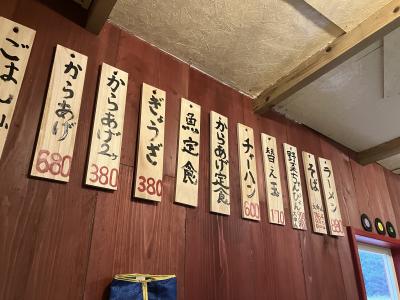 ラーメン
そば
替え玉
170
チャーハン
600
からあげ定食
魚定食
ぎょうざ
380
からあげ2ヶ
380
からあげ
680